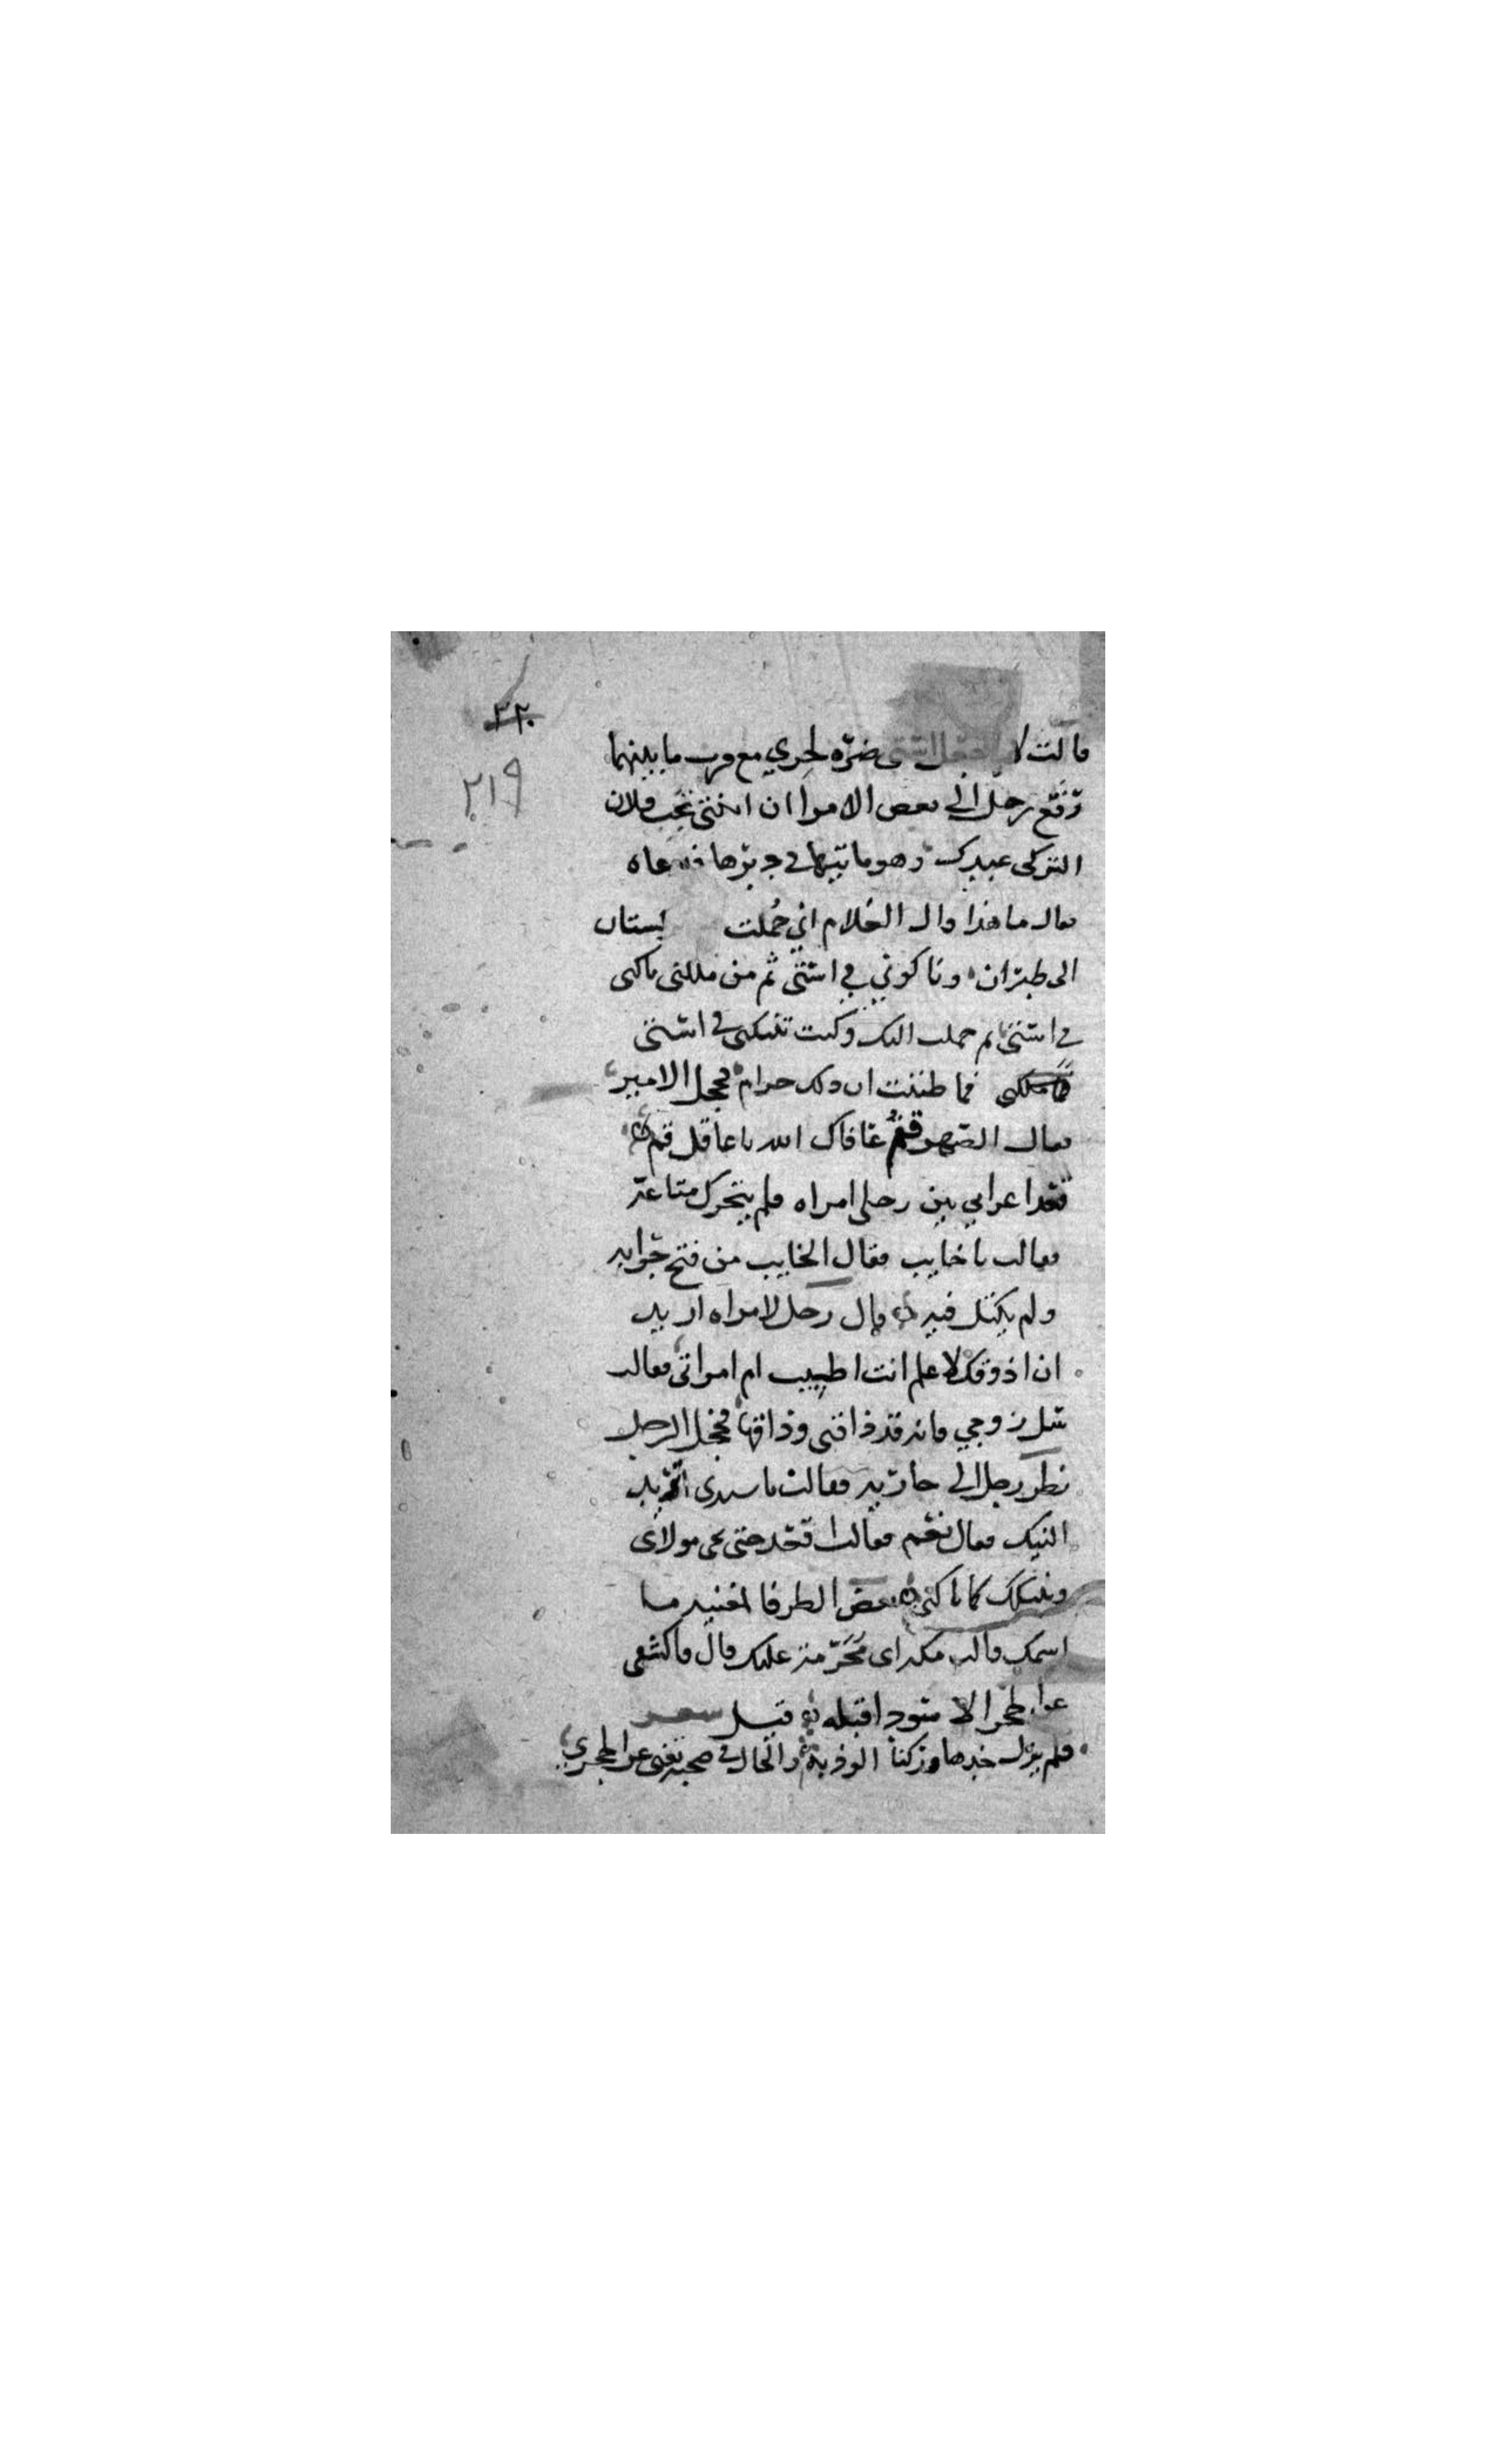 ٢٢٠
٢١٩
قالت لا اجعل استى ضرّه لحرى مع قرب ما بينهما
رفع رجل الى بعض الامرا ان ابنتى تحب فلان
التركى عبدك وهو ما ياتيها الا فى دبرها
فقال ما هذا قال الغلام انى حُملت بستان
الى طبران وناكونى فى استى ثم من ملكنى ناكنى
فى استى ثم حملت اليك وكنت تنيكنى فى استى
فما ظننت ان ذلك حرام فخجل الامير
فقال الصهر قم عافاك الله يا عاقل قم
قعد اعرابى بين رجلى امراه فلم يتحرك متاعه
فقالت يا خايب فقال الخايب من فتح جرابه
ولم يكتل فيه قال رجل لامراه اريد
ان اذوقك لاعلم انت اطيب ام امراتى فقالت
سل زوجى فانه قد ذاقنى وذاقها فخجل الرجل
نظر رجل الى جاريه فقالت يا سيدى اتريد
النيك فقال نعم فقالت اقعد حتى يجى مولاى
وينيكك كما ناكنى بعض الظرفا لمغنيه ما
اسمك قالت مكه اى محرمه عليك قال فاكشفى
عن الحجر الاسود اقبله
فلم يزل خدها وركنا الوذ به والخال فى صحنه يغنى عن الحجر